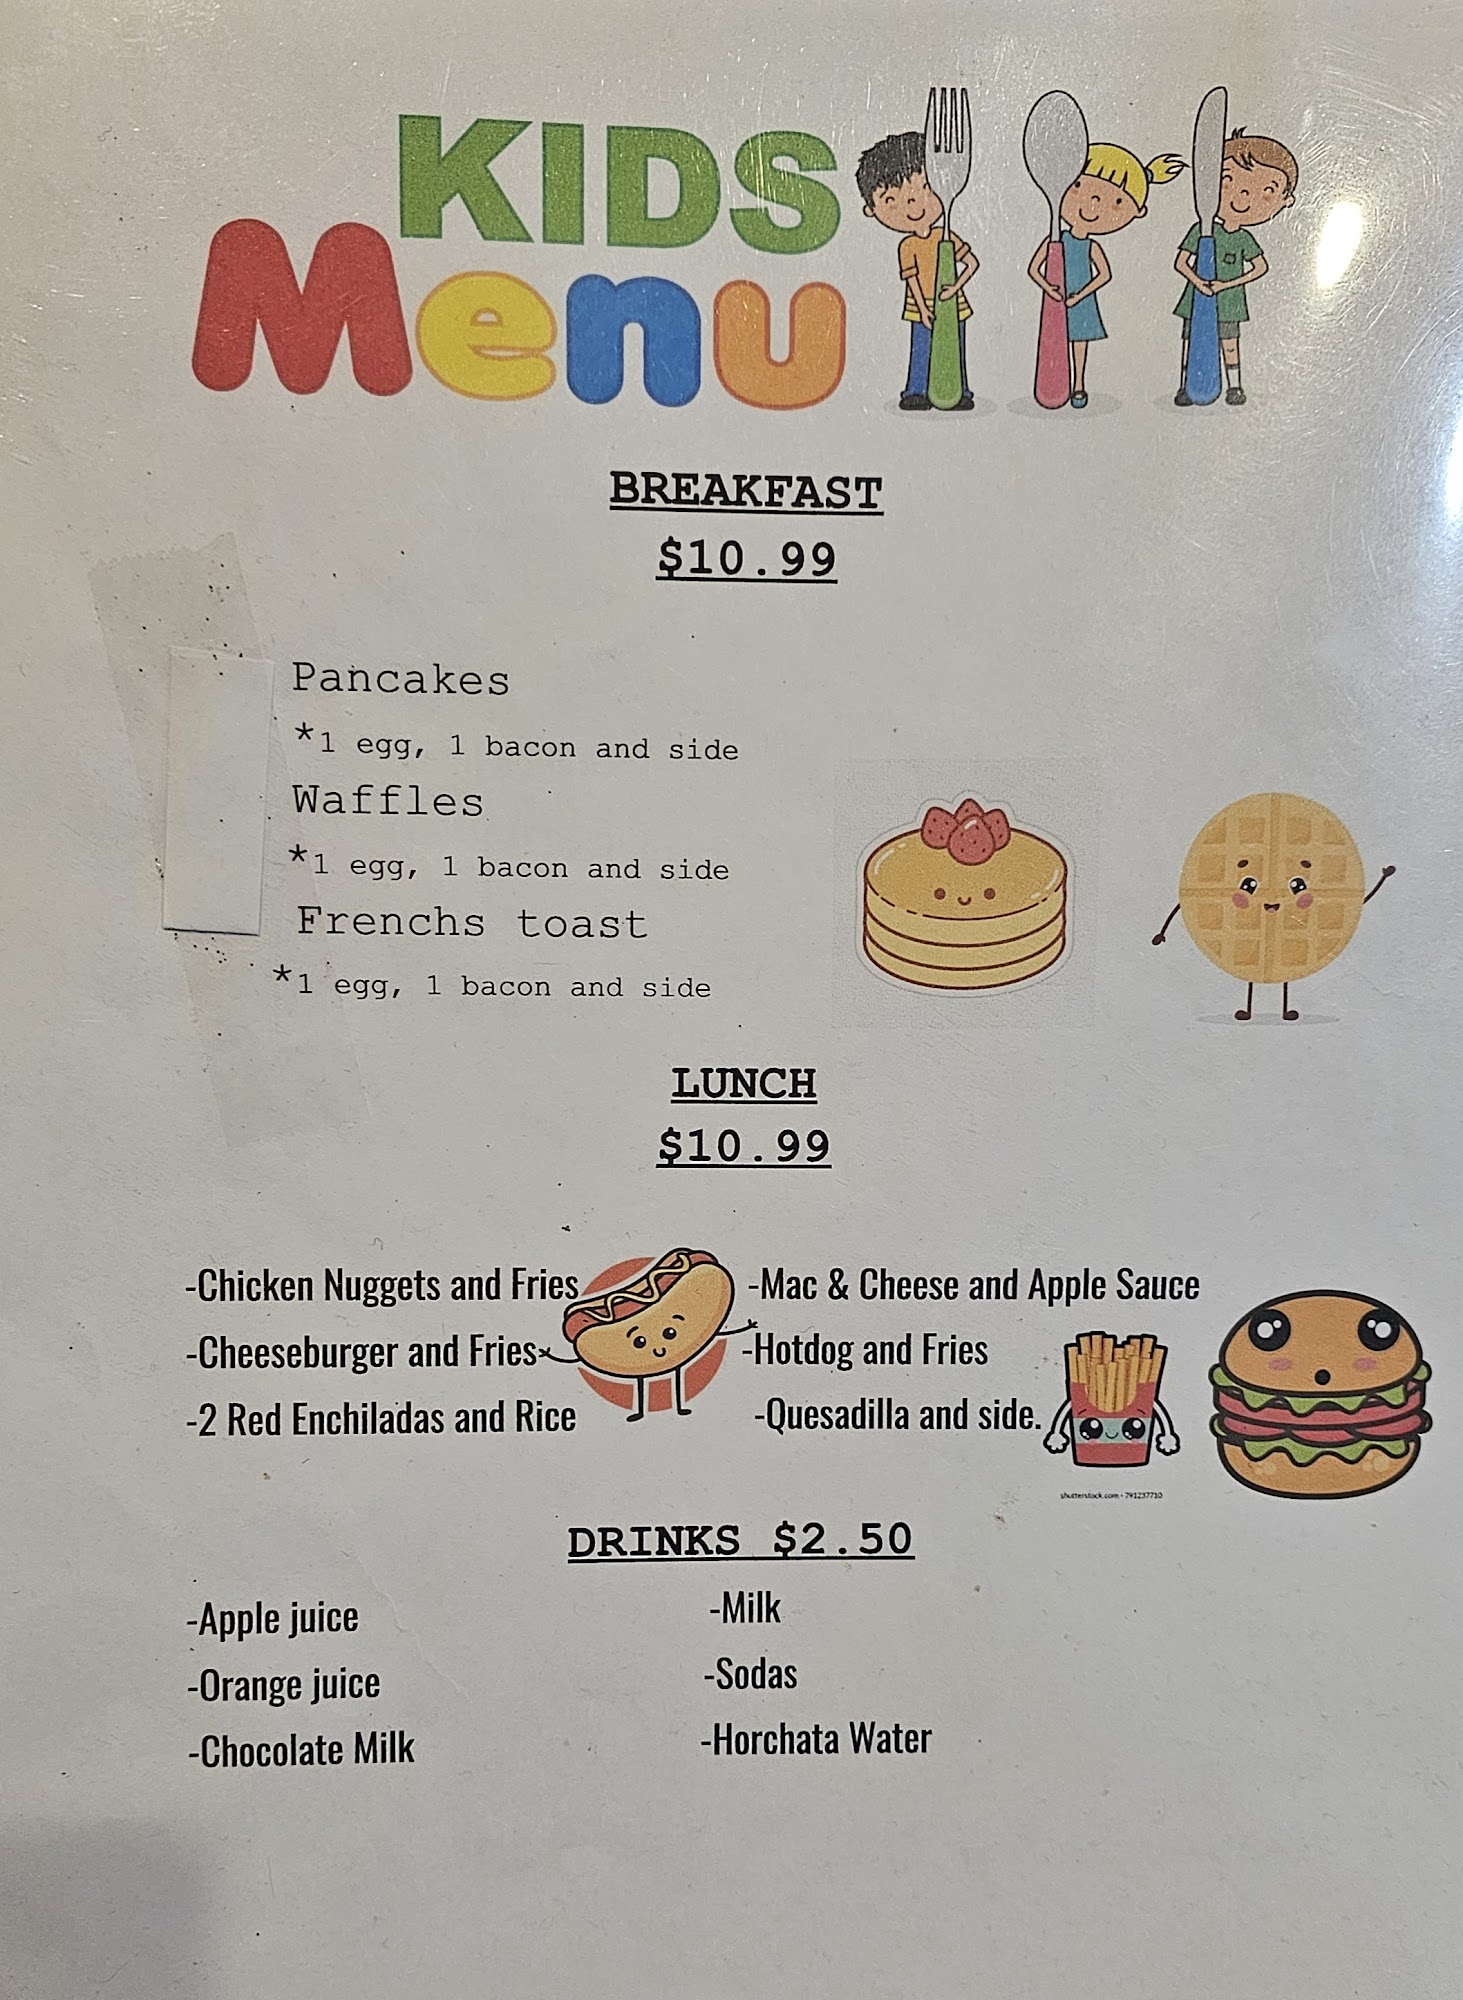 KIDS
Menu
BREAKFAST
$10.99
Pancakes
*1 egg, 1 bacon and side
Waffles
*1 egg, 1 bacon and side
Frenchs toast
*1 egg, 1 bacon and side
LUNCH
$10.99
-Chicken Nuggets and Fries
-Cheeseburger and Fries
-2 Red Enchiladas and Rice
-Mac & Cheese and Apple Sauce
-Hotdog and Fries
-Quesadilla and side.
shutterstock.com · 791237710
DRINKS $2.50
-Apple juice
-Orange juice
-Chocolate Milk
-Milk
-Sodas
-Horchata Water